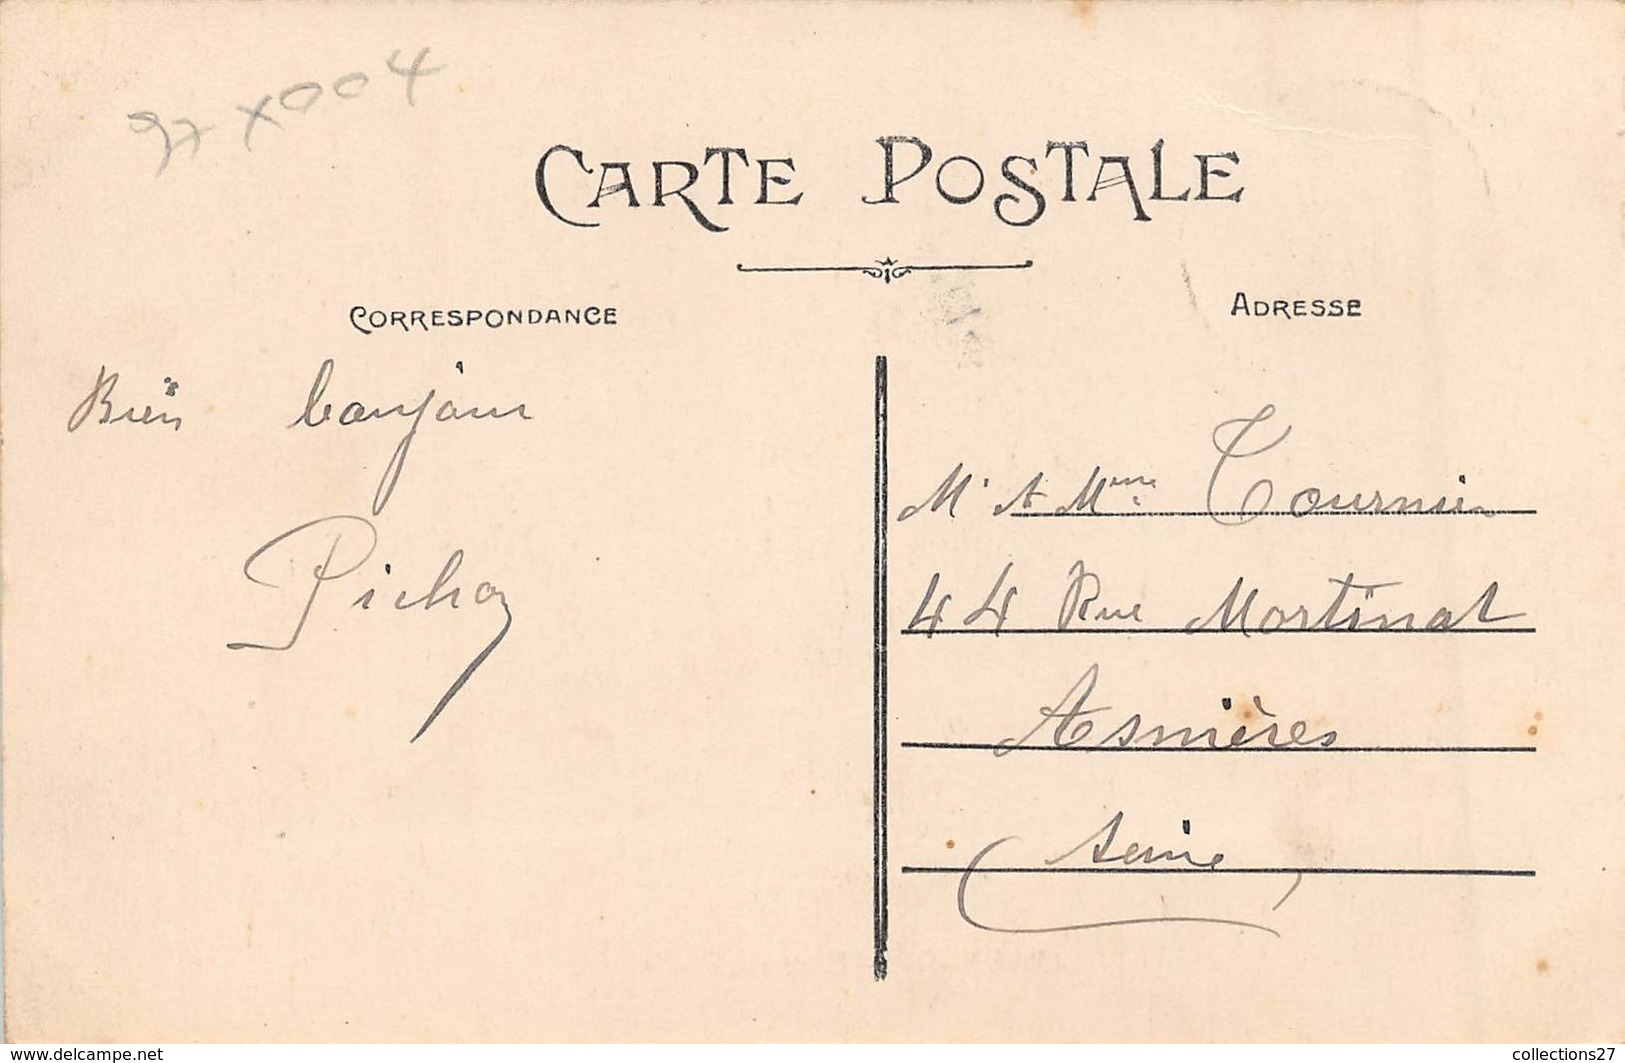 97 X004
CARTE POSTALE
CORRESPONDANCE
ADRESSE
Bien bonjour
Mr et Mme Tournier
44 Rue Mortinat
Asnières
Seine
www.delcampe.net
collections27